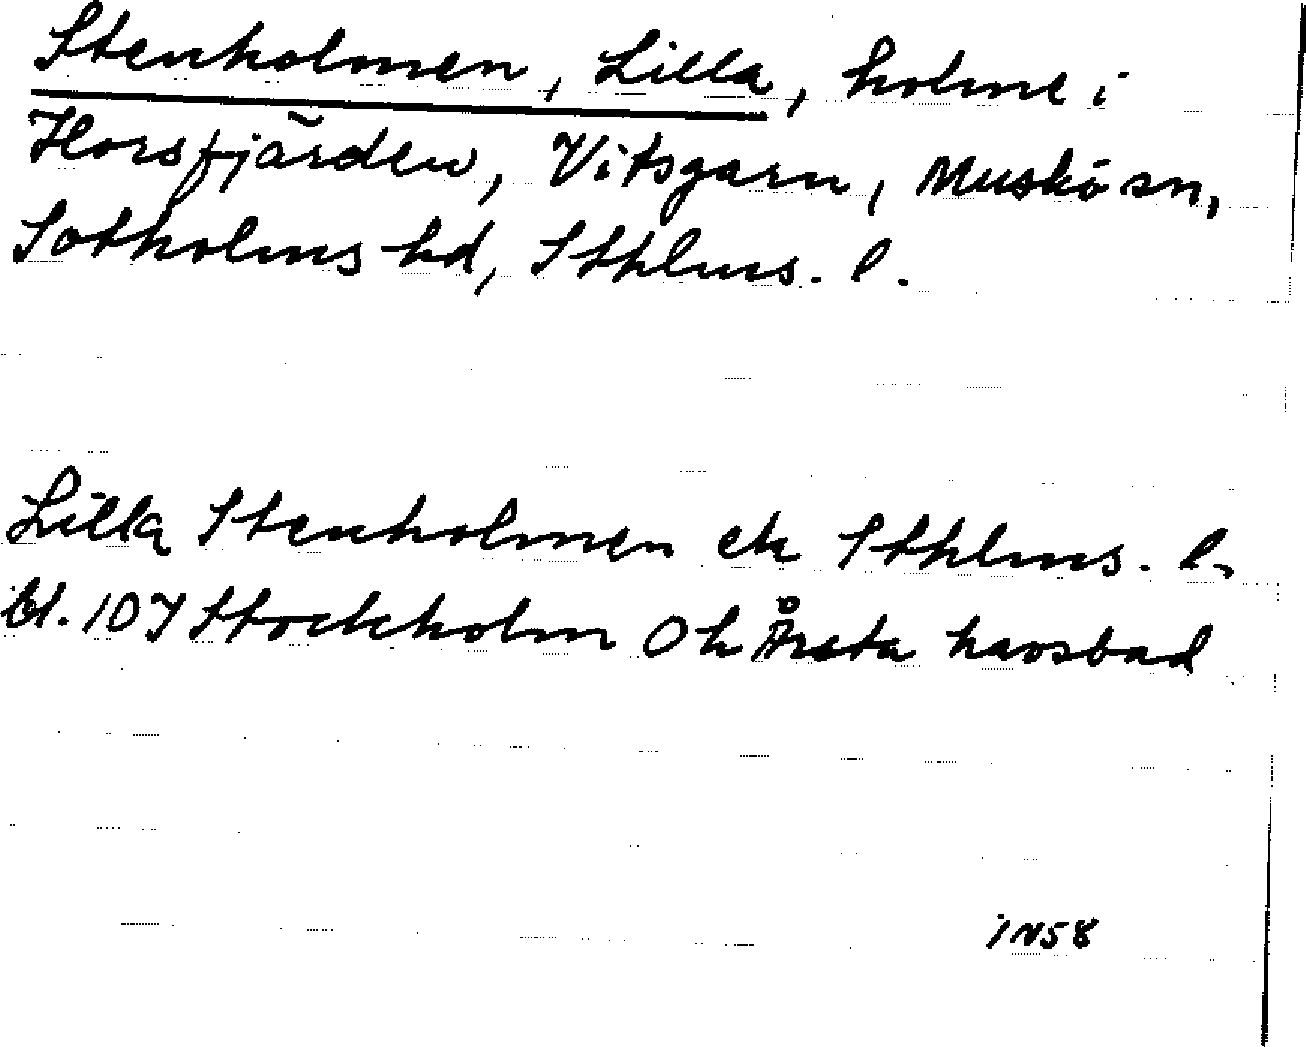 Stenholmen, Lilla, holme i
Horsfjärden, Vitsgarn, Muskö sn,
Sotholms hd, Sthlms. l.
Lilla Stenholmen ek Sthlms. l.
bl. 10I Stockholm O h Årsta havsbad
IN58